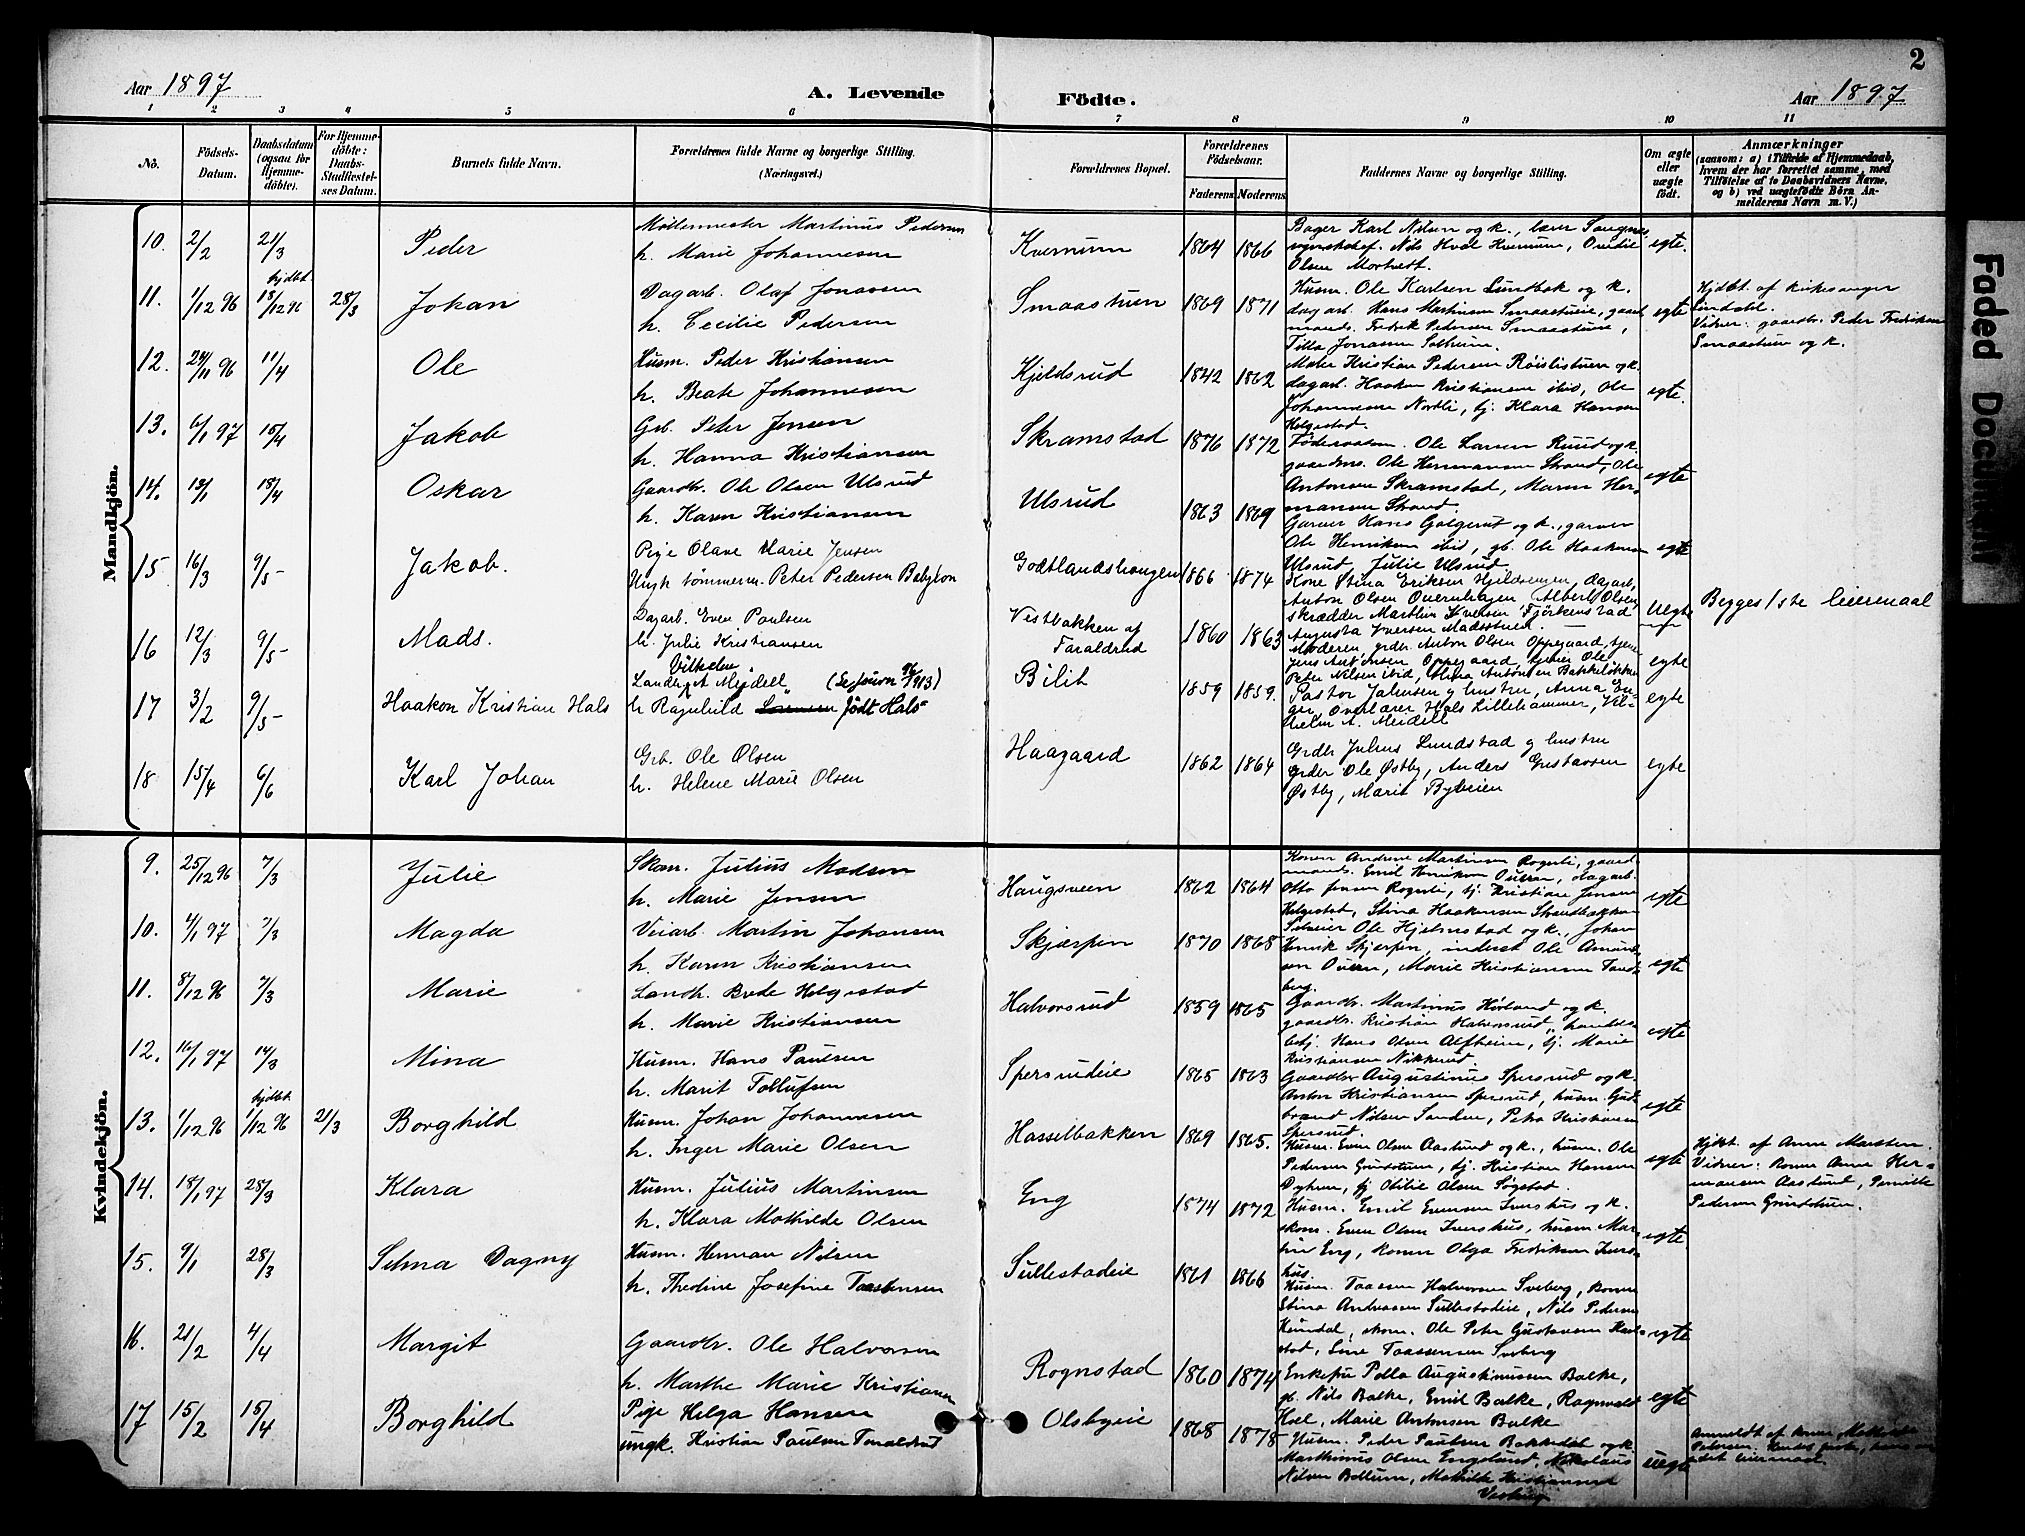 2
Aar 1897
A. Levende
Födte.
Aar 1897
1 2 3 4 5 6 7 8 9 10 11
No.
Födsels-Datum.
Daabsdatum (ogsaa for Hjemme-döbte).
For Hjemme-döbte: Daabs-Stadfæstel-ses Datum.
Barnets fulde Navn.
Forældrenes fulde Navne og borgerlige Stilling.
(Næringsvei.)
Forældrenes Bopæl.
Forældrenes Födselsaar.
Faderens Moderens
Faddernes Navne og borgerlige Stilling.
Om ægte eller uægte født.
Anmærkninger
(saasom: a) i Tilfælde af Hjemmedaab,
hvem der har forrettet samme, med
Tilføielse af to Daabsvidners Navne,
og b) ved uægtefödte Börn An-
melderens Navn m. V.)
Mandkjön.
10. 2/2 21/3 Peder
Møllermester Martinus Pedersen
h. Marie Johannesen
Kvernum 1864 1866
Bager Karl Nilsen og k.
Olsen Mortvedt.
egte.
11. 1/12 96 hjdbt. 13/12 96 28/3 Johan
Dagarb. Olaf Jonassen
h. Cecilie Pedersen
Smaastuen 1869 1871
Husm. Ole Karlsen Lundbak og k.
dagarb. Hans Martinsen Smaastueie, gaard
mands. Fredrik Pedersen Smaastuen,
Tilla Jonassen Solheim.
egte
Hjdbt. af kirkesanger
Lindstø.
Vidner: gaardbr. Peder Fredriksen
Smaastuen og k.
12. 24/11 96 11/4 Ole
Husm. Peder Kristiansen
h. Beate Johannesen
Kjeldsrud 1842 1862
Maler Kristian Pedersen Røislistuen og k.
dagarb. Haakon Kristiansen ibid, Ole
Johannesen Nordli, tj. Klara Hansen
Helgestad.
egte.
13. 6/1 97 15/4 Jakob
Grb. Peter Jensen
h. Hanna Kristiansen
Skramstad 1876 1872
Føderaadsm. Ole Larsen Ruud og k.
gaardms. Ole Hermansen Strand, Ole
Antonsen Skramstad, Maren Her-
mansen Strand.
egte
14. 13/1 18/4 Oskar
Gaardbr. Ole Olsen Ulsrud
h. Karen Kristiansen
Ulsrud 1863 1869
Garver Hans Galgerud og k., garver
Ole Henriksen ibid, gb. Ole Haakensen
Ulsrud, Julie Ulsrud
egte
15 16/3 9/5 Jakob.
Pige Olave Marie Jensen
Ungk tømmerm. Peter Pedersen Babylon
Godtlandshaugen 1866 1874
Kone Stina Eriksen Hjeldsengen, dagarb.
Anton Olsen Overnhagen, Albert Olsen,
skrædder Marthin Iversen Fjørkenstad
Augusta Iversen Madsstuen.
Uegte
Begges 1ste leiermaal
16 12/3 9/5 Mads.
Dagarb. Even Paulsen
h. Julie Kristiansen
Vestbakken af
Faraldrud
1860 1863
Moderen, grdbr. Anton Olsen Oppegaard, tjener
Jens Antonsen Oppegaard, tjener Ole
Peter Nilsen ibid, Olina Antonsen Bakkeløkken
egte
17 3/2 9/5 Haakon Kristian Hals
Vilhelm
Landbr. A Mejdell
h Ragnhild født Hals
Bilit 1859 1859.
Pastor Jakobsen og hustru, Anna
Overlærer Hals Lillehammer, Vil-
helm A. Meidell
egte
18 15/4 6/6 Karl Johan
Grb. Ole Olsen
h. Helene Marie Olsen
Haagaard 1862 1864
Grdbr Julius Lundstad og hustru
Grdbr Ole Østby, Anders Gustavsen
Østby, Marit Bybeien
egte
Kvindekjön.
9. 25/12 96 7/3 Julie
Skom. Julius Madsen
h. Marie Jensen
Haugsveen 1862 1864
Konen Andrine Martinsen Rognli, gaard
mands. Emil Henriksen Ouren, dagarb.
Otto Jensen Rognli, tj. Kristian Jensen
Helgestad, Stina Haakensen Strandbakken
egte
10. 4/1 97 7/3 Magda
Veiarb. Martin Johansen
h. Karen Kristiansen
Skjærpen 1870 1868
Selveier Ole Hjelmstad og k., Johan
Henrik Skjerpen, inderst Ole Amund-
sen Ouren, Marie Kristiansen
berg.
egte
11. 8/12 96 7/3 Marie
Landh. Brede Helgestad
h. Marie Kristiansen
Halvorsrud 1859 1865
Gaardbr. Martinus Høiland og k.
gaardbr. Kristian Halvorsrud, handels-
betj. Hans Olsen Alfheim, tj. Marie
Kristiansen Nikkerud.
egte
12. 16/1 97 14/3 Mina
Husm. Hans Paulsen
h. Marit Tollufsen
Spersrudeie 1865 1863
Gaardbr Augustinus Spersrud og k.
Anton Kristiansen Spersrud, husm. Gud-
brand Nilsen Sanden, Petra Kristiansen
Spersrud.
egte
13. 1/12 96 hjdbt 1/12 96 21/3 Borghild
Husm. Johan Johannesen
h. Inger Marie Olsen
Hasselbakken 1869 1865.
Husm. Even Olsen Aaslund og k., husm. Ole
Pedersen Grinistuen, tj. Kristian Hansen
Dyhren, tj Otilie Olsen Søgstad.
egte
Hjdbt. af Anne Marsten
Vidner: Konen Anne Her-
mansen Aaslund, Pernille
Pedersen Grinistuen.
14. 18/1 97 28/3 Klara
Husm. Julius Martinsen
h. Klara Mathilde Olsen
Eng 1874 1872
Husm. Emil Evensen Ivershus og k.
skom. Even Olsen Ivershus, husm. Mar-
tin Eng, konen Olga Fredriksen Ivers-
hus.
egte.
15. 9/1 28/3 Selma Dagny
Husm. Herman Nilsen
h. Thedine Josefine Taasensen
Sullestadeie 1861 1866
Husm. Taassen Halvorsen Sveberg, konen
Stina Andreassen Sullestadeie, Nils Pedersen
Heimdal, skom. Ole Peter Gustavsen Karl-
stad, Line Taassensen Sveberg
egte
16. 21/2 4/4 Margit
Gaardbr. Ole Halvorsen
h. Marthe Marie Kristiansen
Rognstad 1860 1874
Enkefru Polla Augustinussen Balke,
gb. Nils Balke, Emil Balke, Ragnvald
Hoel, Marie Antonsen Balke
egte
17 15/2 15/4 Borghild
Pige Helga Hansen
ungk. Kristian Paulsen Faraldrud
Olsbyeie 1868 1878
Husm. Peder Paulsen Bakkedal og k.
Marthinus Olsen Engelund, Nikolaus
Nilsen Bollum, Mathilde Kristiansen
uegte
Anmeldt af konen Mathilde
Pedersen.
Faded Document